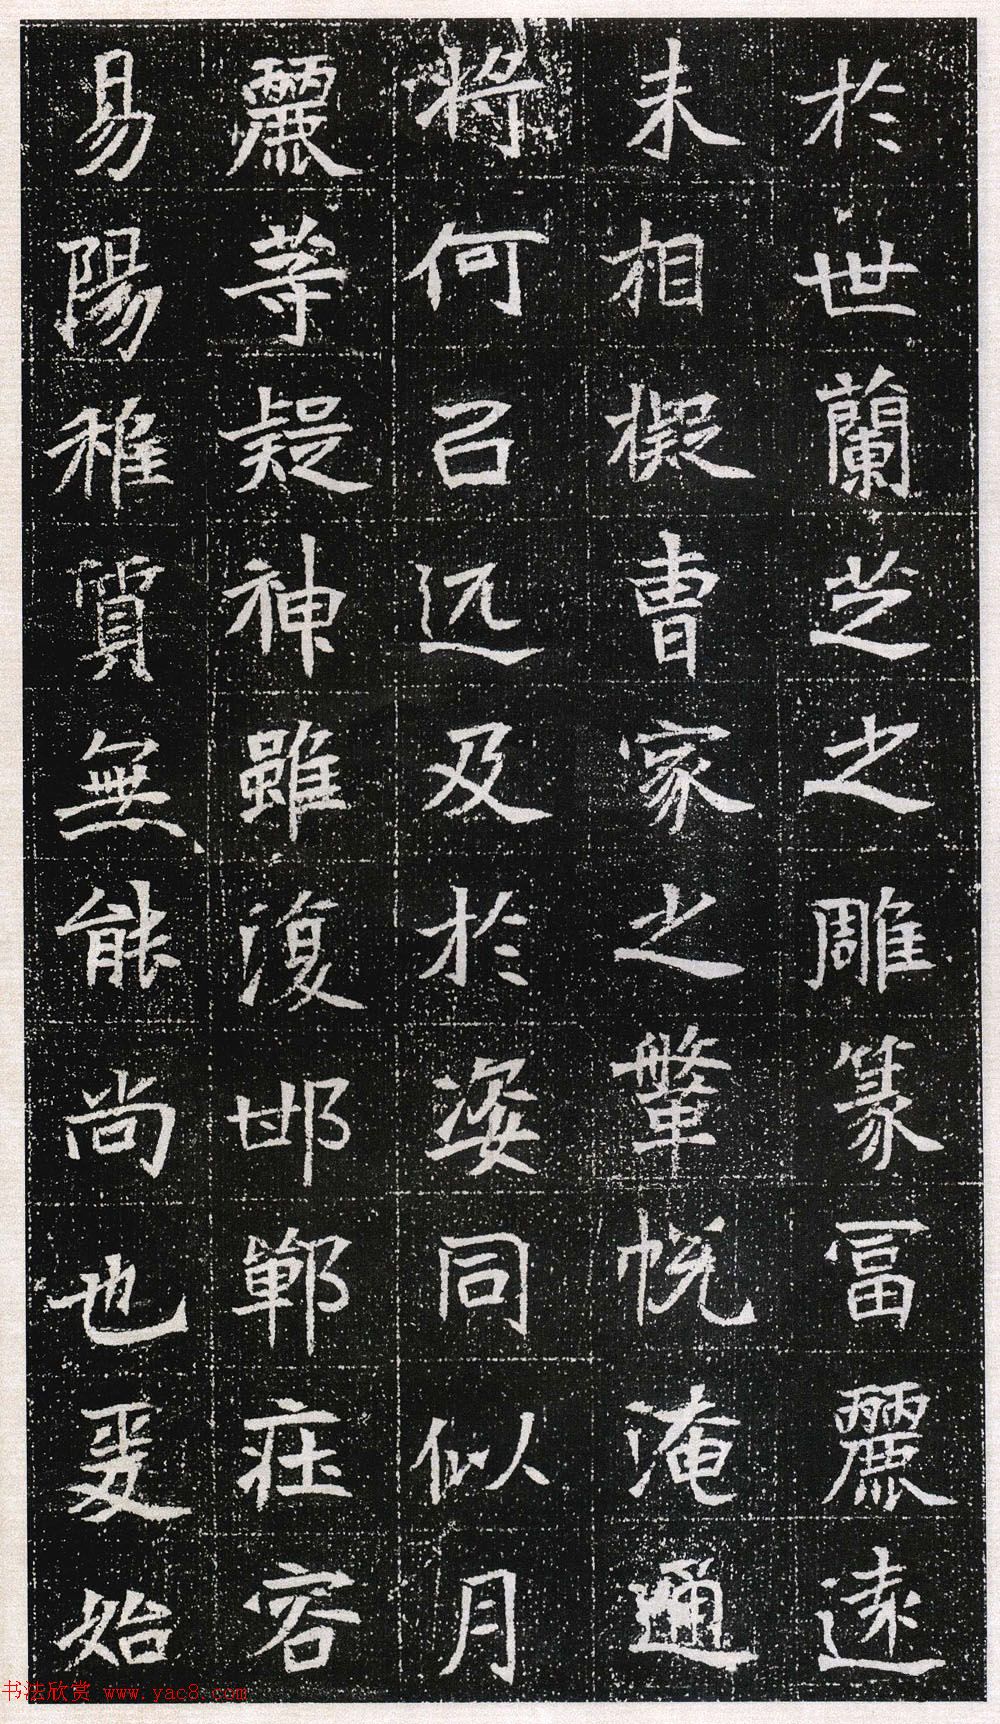 於世蘭芝之雕篆冨麗遠
未相擬曹家之鞶帨淹通
將何召远及於姿同似月
麗等疑神雖復邯鄲疰容
易陽稚質無能尚也爰始
书法欣赏 www.yac8.com